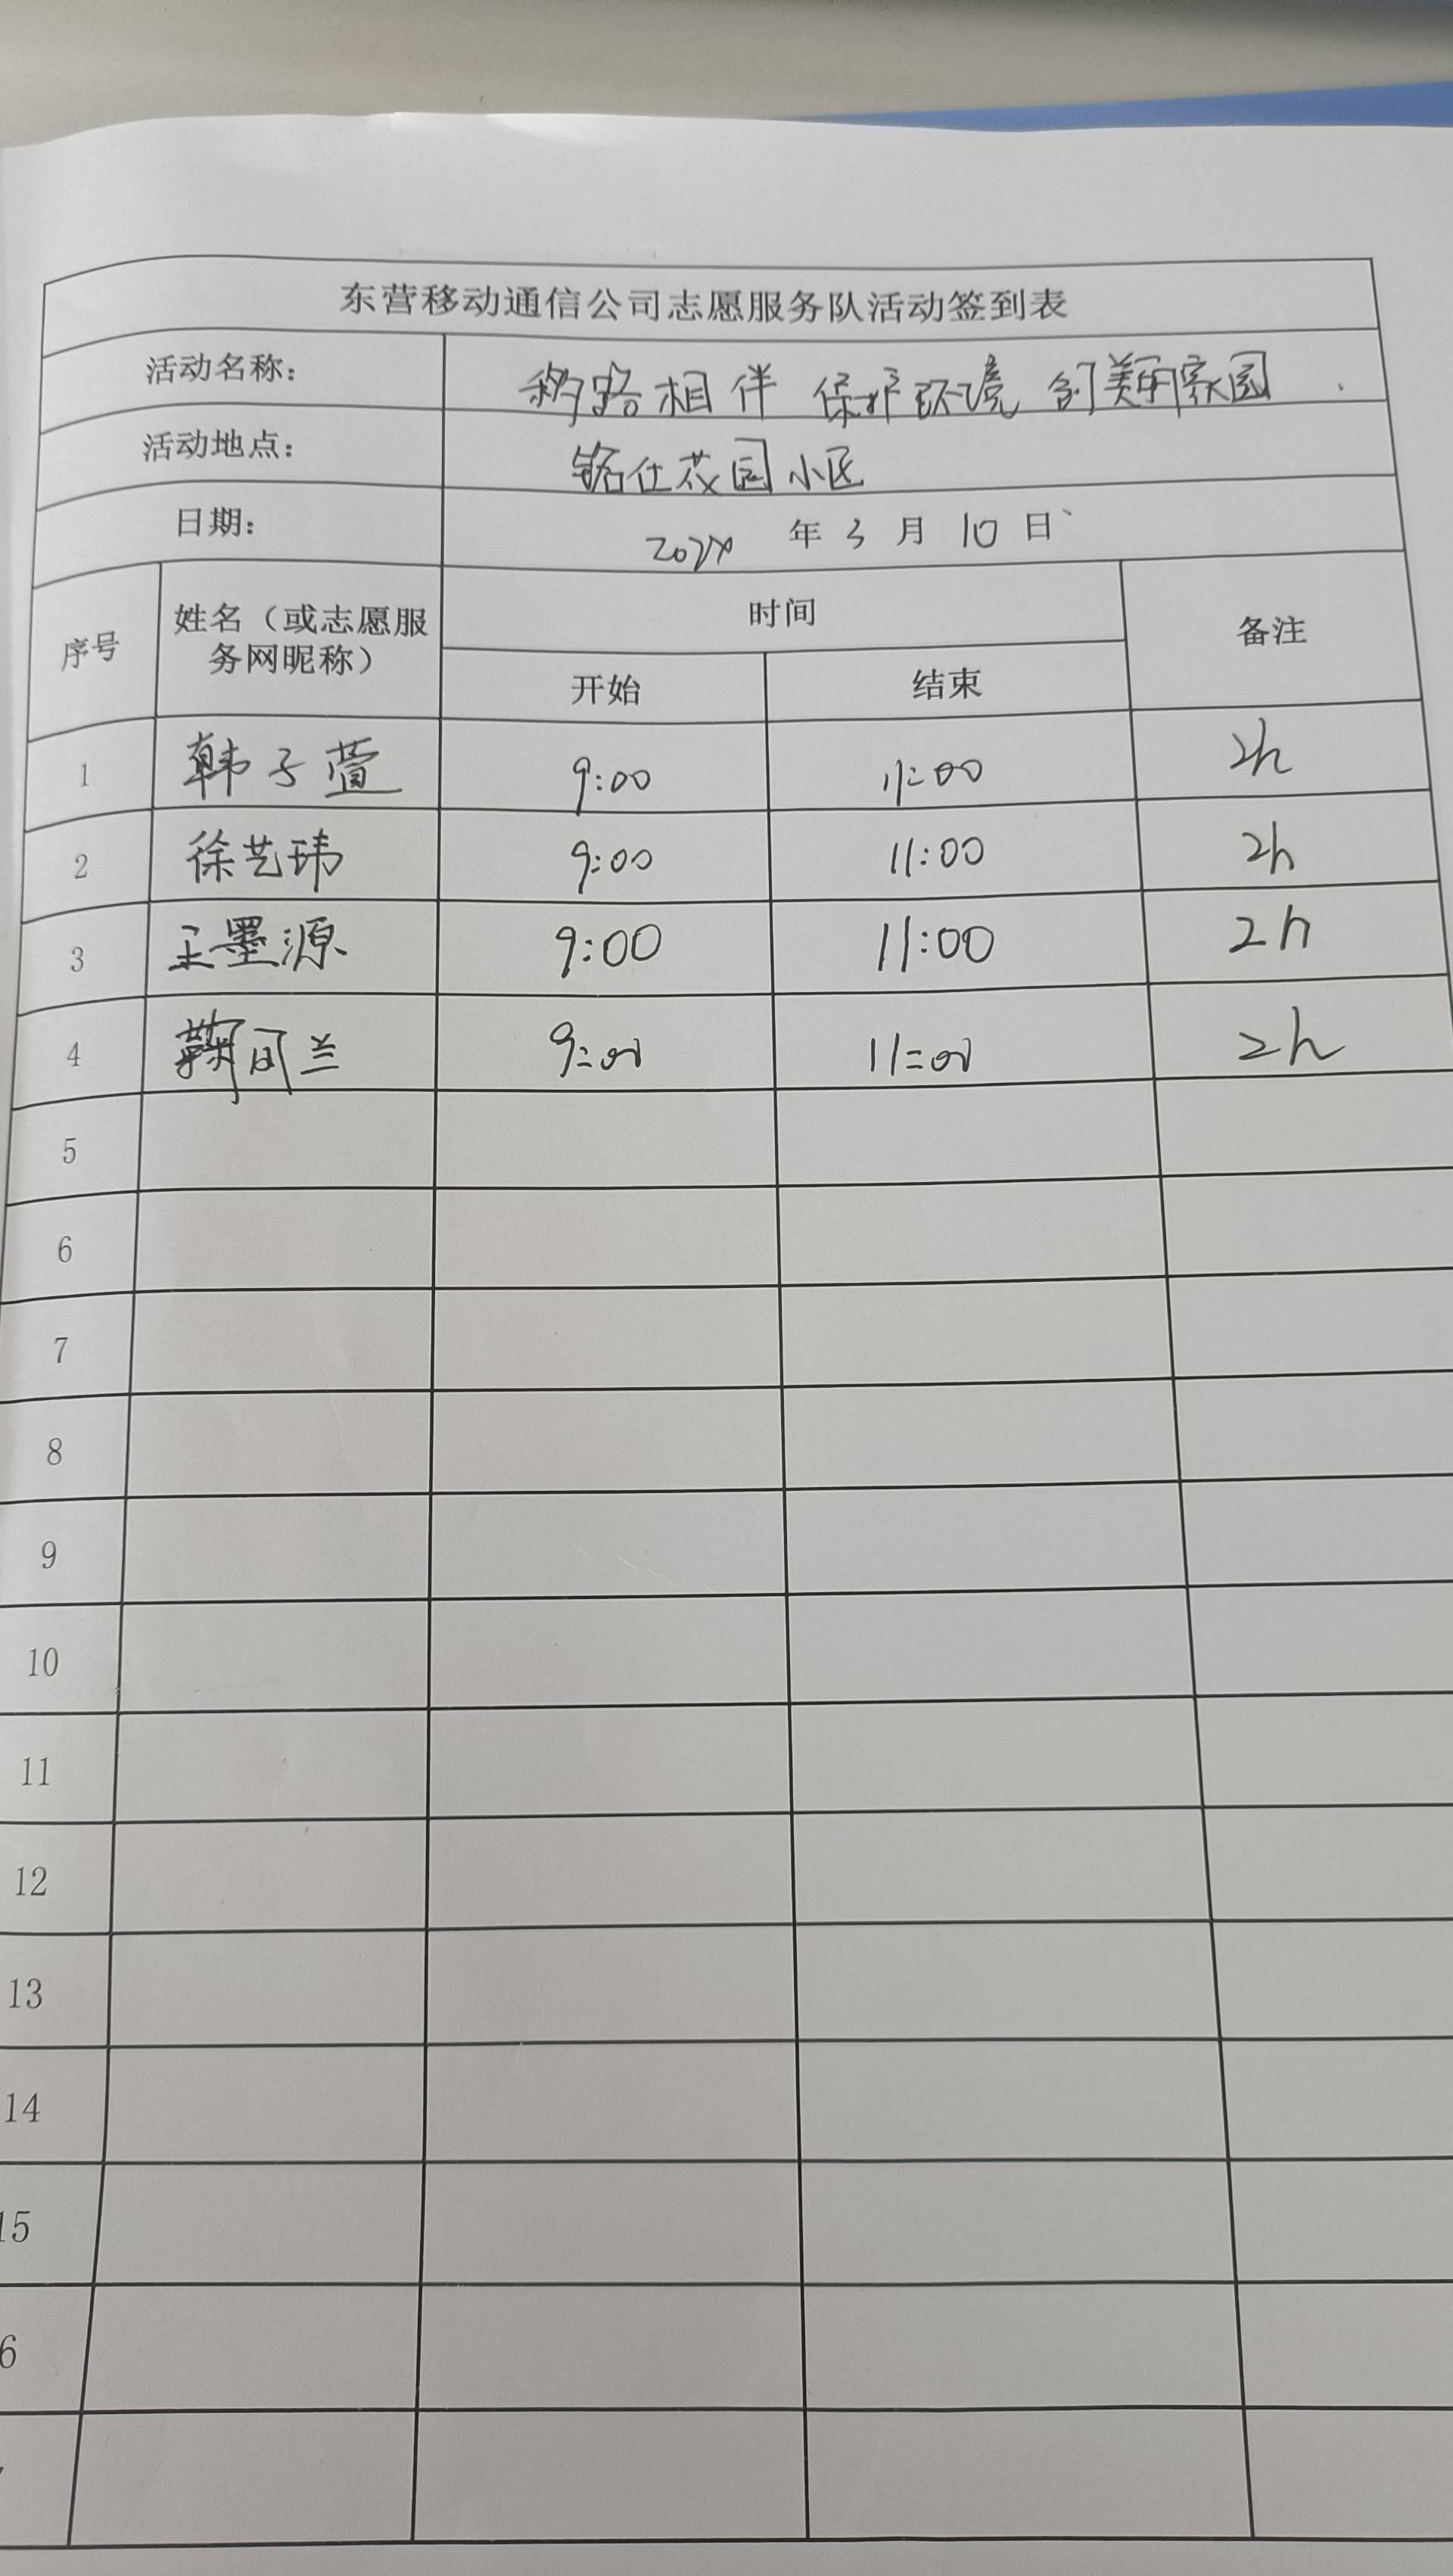 东营移动通信公司志愿服务队活动签到表
活动名称: 移路相伴 保护环境 创美丽家园
活动地点: 铭仕花园小区
日期: 2024 年 3 月 10 日
序号 姓名（或志愿服务网昵称） 时间 备注
开始 结束
1 韩子萱 9:00 11:00 2h
2 徐艺玮 9:00 11:00 2h
3 王墨源 9:00 11:00 2h
4 鞠 兰 9:00 11:00 2h
5
6
7
8
9
10
11
12
13
14
15
6